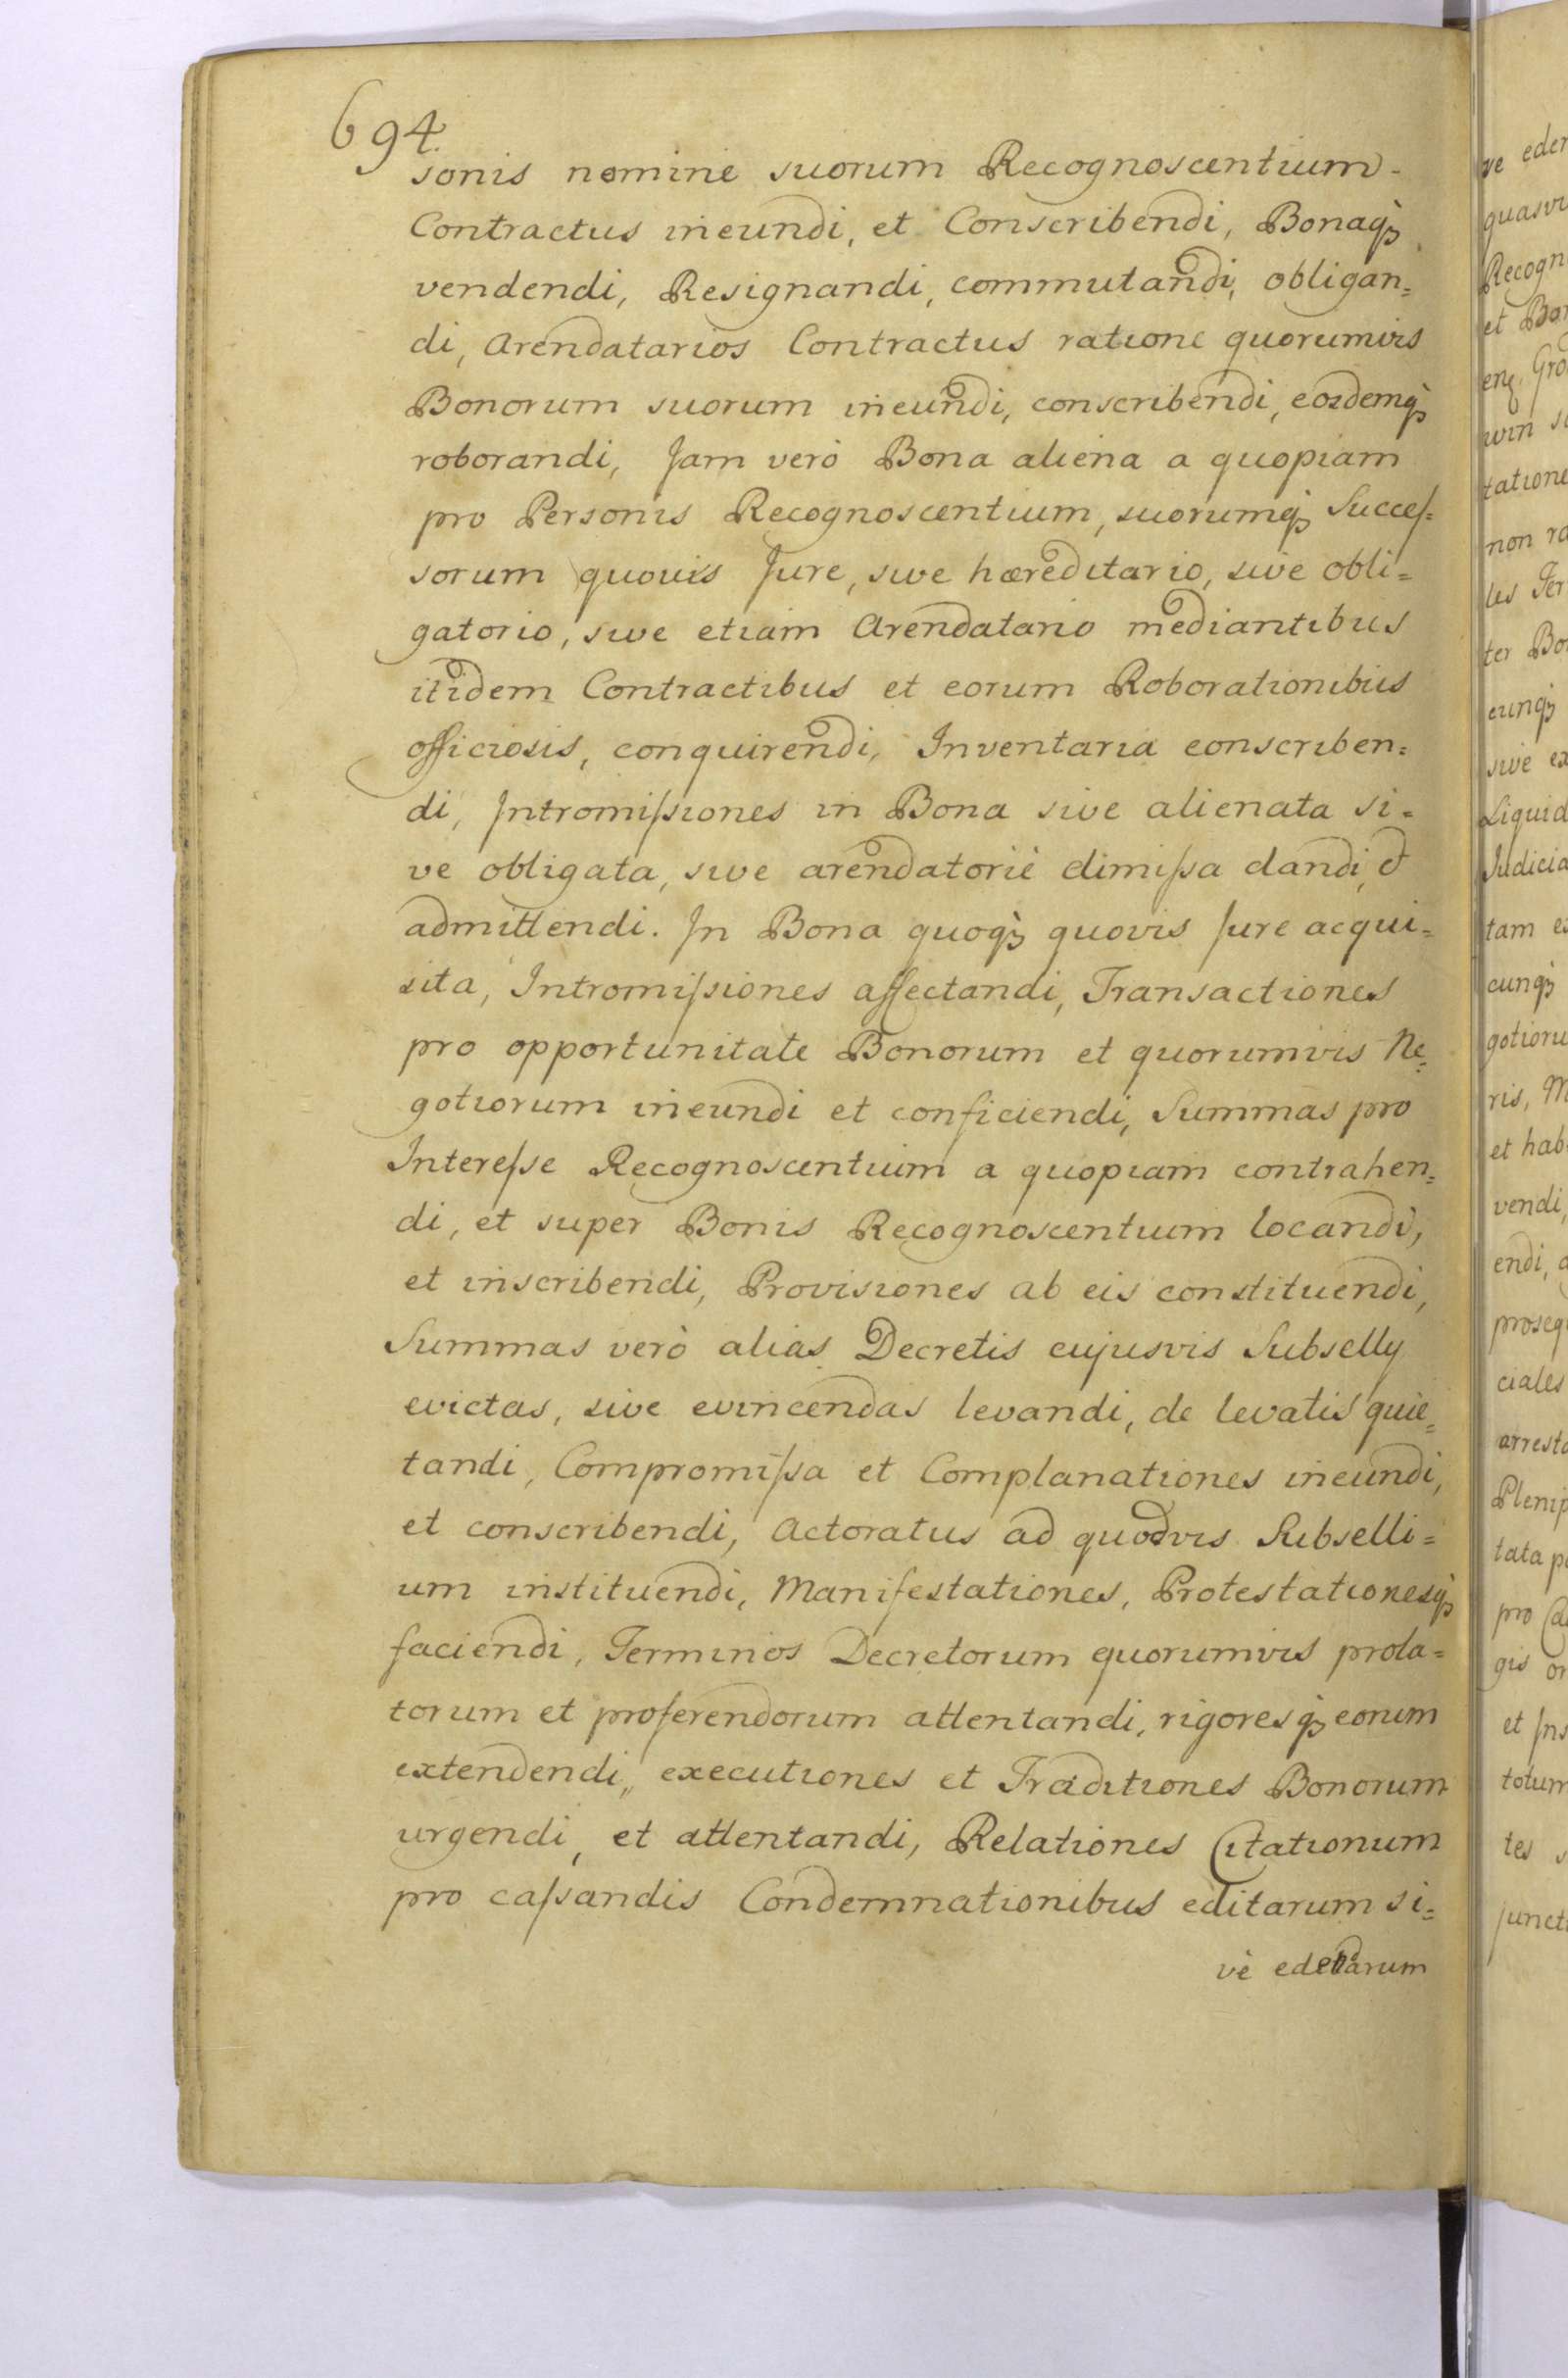 694.
sonis nomine suorum Recognoscentium
Contractus ineundi, et Conscribendi, Bonaqȝ
vendendi, Resignandi, commutandi, obligan=
di, Arendatarios Contractus ratione quorumvis
Bonorum suorum ineundi, conscribendi, eosdemqȝ
roborandi, Jam verò Bona aliena a quopiam
pro Personis Recognoscentium, suorumqȝ Succeſ=
sorum quovis Jure, sive hæreditario, sive obli=
gatorio, sive etiam Arendatario mediantibus
itidem Contractibus et eorum Roborationibus
officiosis, conquirendi, Inventaria conscriben=
di, Intromiſsiones in Bona sive alienata si=
ve obligata, sive arendatoriè dimiſsa dandi, et
admittendi. In Bona quoqȝ quovis Jure acqui=
sita, Intromiſsiones affectandi, Transactiones
pro opportunitate Bonorum et quorumvis Ne=
gotiorum ineundi et conficiendi, Summas pro
Intereſse Recognoscentium a quopiam contrahen=
di, et super Bonis Recognoscentium locandi,
et inscribendi, Provisiones ab eis constituendi,
Summas verò alias Decretis cujusvis Subselly
evictas, sive evincendas levandi, de levatis quie=
tandi, Compromiſsa et Complanationes ineundi,
et conscribendi, Actoratus ad quodvis Subselli=
um instituendi, Manifestationes, Protestationesqȝ
faciendi, Terminos Decretorum quorumvis prola=
torum et proferendorum attentandi, rigoresqȝ eorum
extendendi, executiones et Traditiones Bonorum
urgendi, et attentandi, Relationes Citationum
pro caſsandis Condemnationibus editarum si=
vè edendarum
ve eden
quasvi
Recogn
et Bon
enq. Gro
win s
tatione
non ra
les Ter
ter Bo
cunqȝ
sive ex
Liquid
Judicia
tam e
cunqȝ
gotioru
ris, M
et hab
vendi,
endi,
proseq
ciales
arresta
Plenip
tata p
pro Ca
gis or
et Ins
totum
tes s
junct